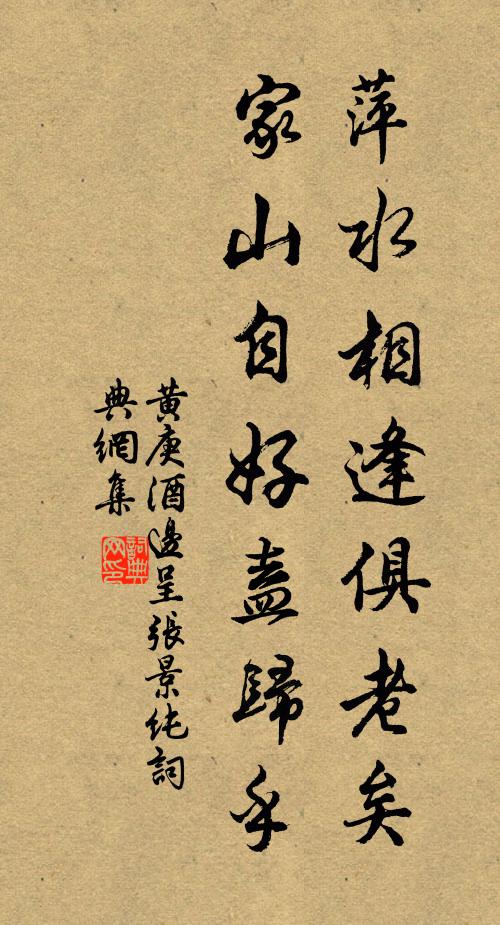 萍水相逢俱老矣
家山自好盍歸乎
黃庚酒邊呈張景純詞
典網集
詞典
网印